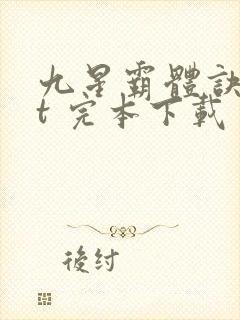 九星霸體訣
t 完本下載
後紂